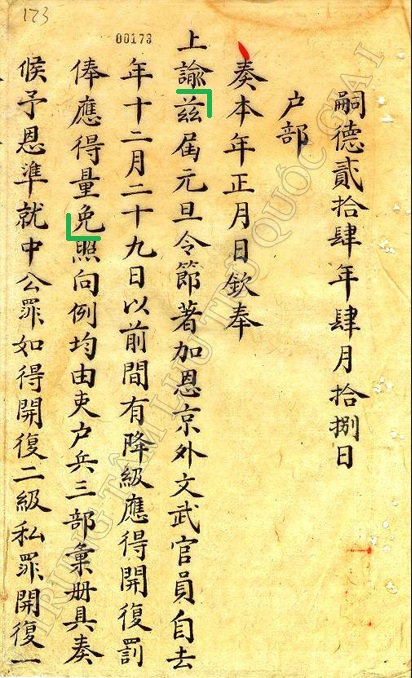 173
00173
嗣德貳拾肆年肆月拾捌日
户部
奏本年正月日欽奉
上諭兹屆元旦令節著加恩京外文武官員自去
年十二月二十九日以前間有降級應得開復罰
俸應得量免照向例均由吏户兵三部彙册具奏
候予恩準就中公罪如得開復二級私罪開復一
TRUNG TÂM LƯU TRỮ QUỐC GIA I